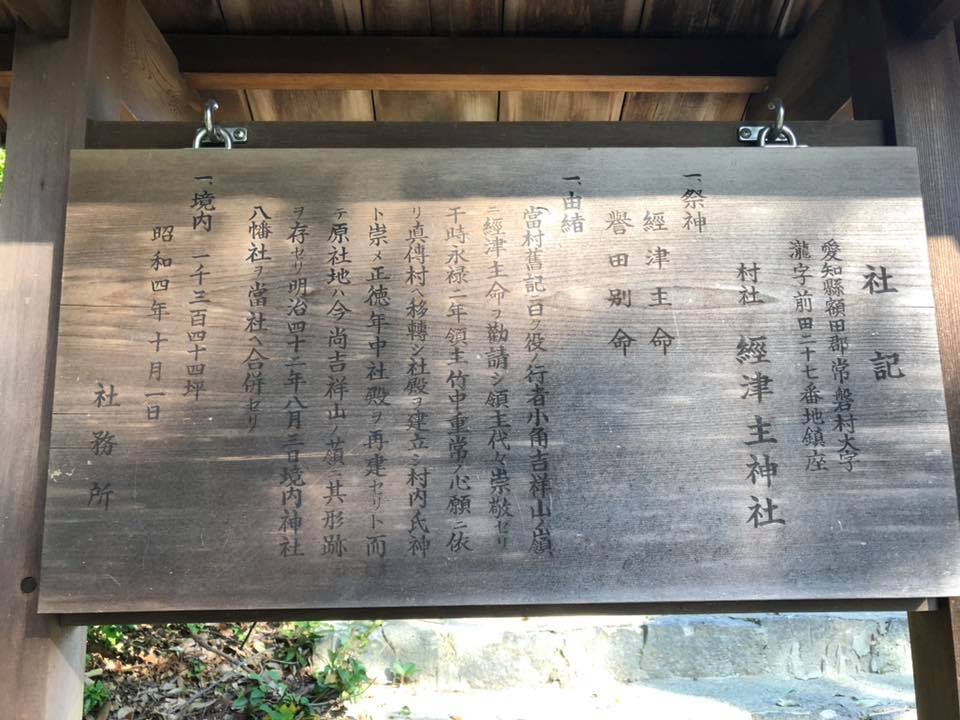 社記
愛知縣額田郡常磐村大字
瀧字前田二十七番地鎮座
村社 經津主神社
一、祭神
經津主命
譽田別命
一、由緒
當村舊記ニ曰ク役ノ行者小角吉祥山ノ嶺
ニ經津主命ヲ勸請シ領主代々崇敬セリ
干時永禄一年領主竹中重常ノ心願ニ依
リ真傳村ヘ移轉シ社殿ヲ建立シ村内氏神
ト崇メ正徳年中社殿ヲ再建セリト而
テ原社地ハ今尚吉祥山ノ嶺ニ其形跡
ヲ存セリ明治四十二年八月三日境内神社
八幡社ヲ當社ヘ合併セリ
一、境内 一千三百四十四坪
昭和四年十月一日
社務所